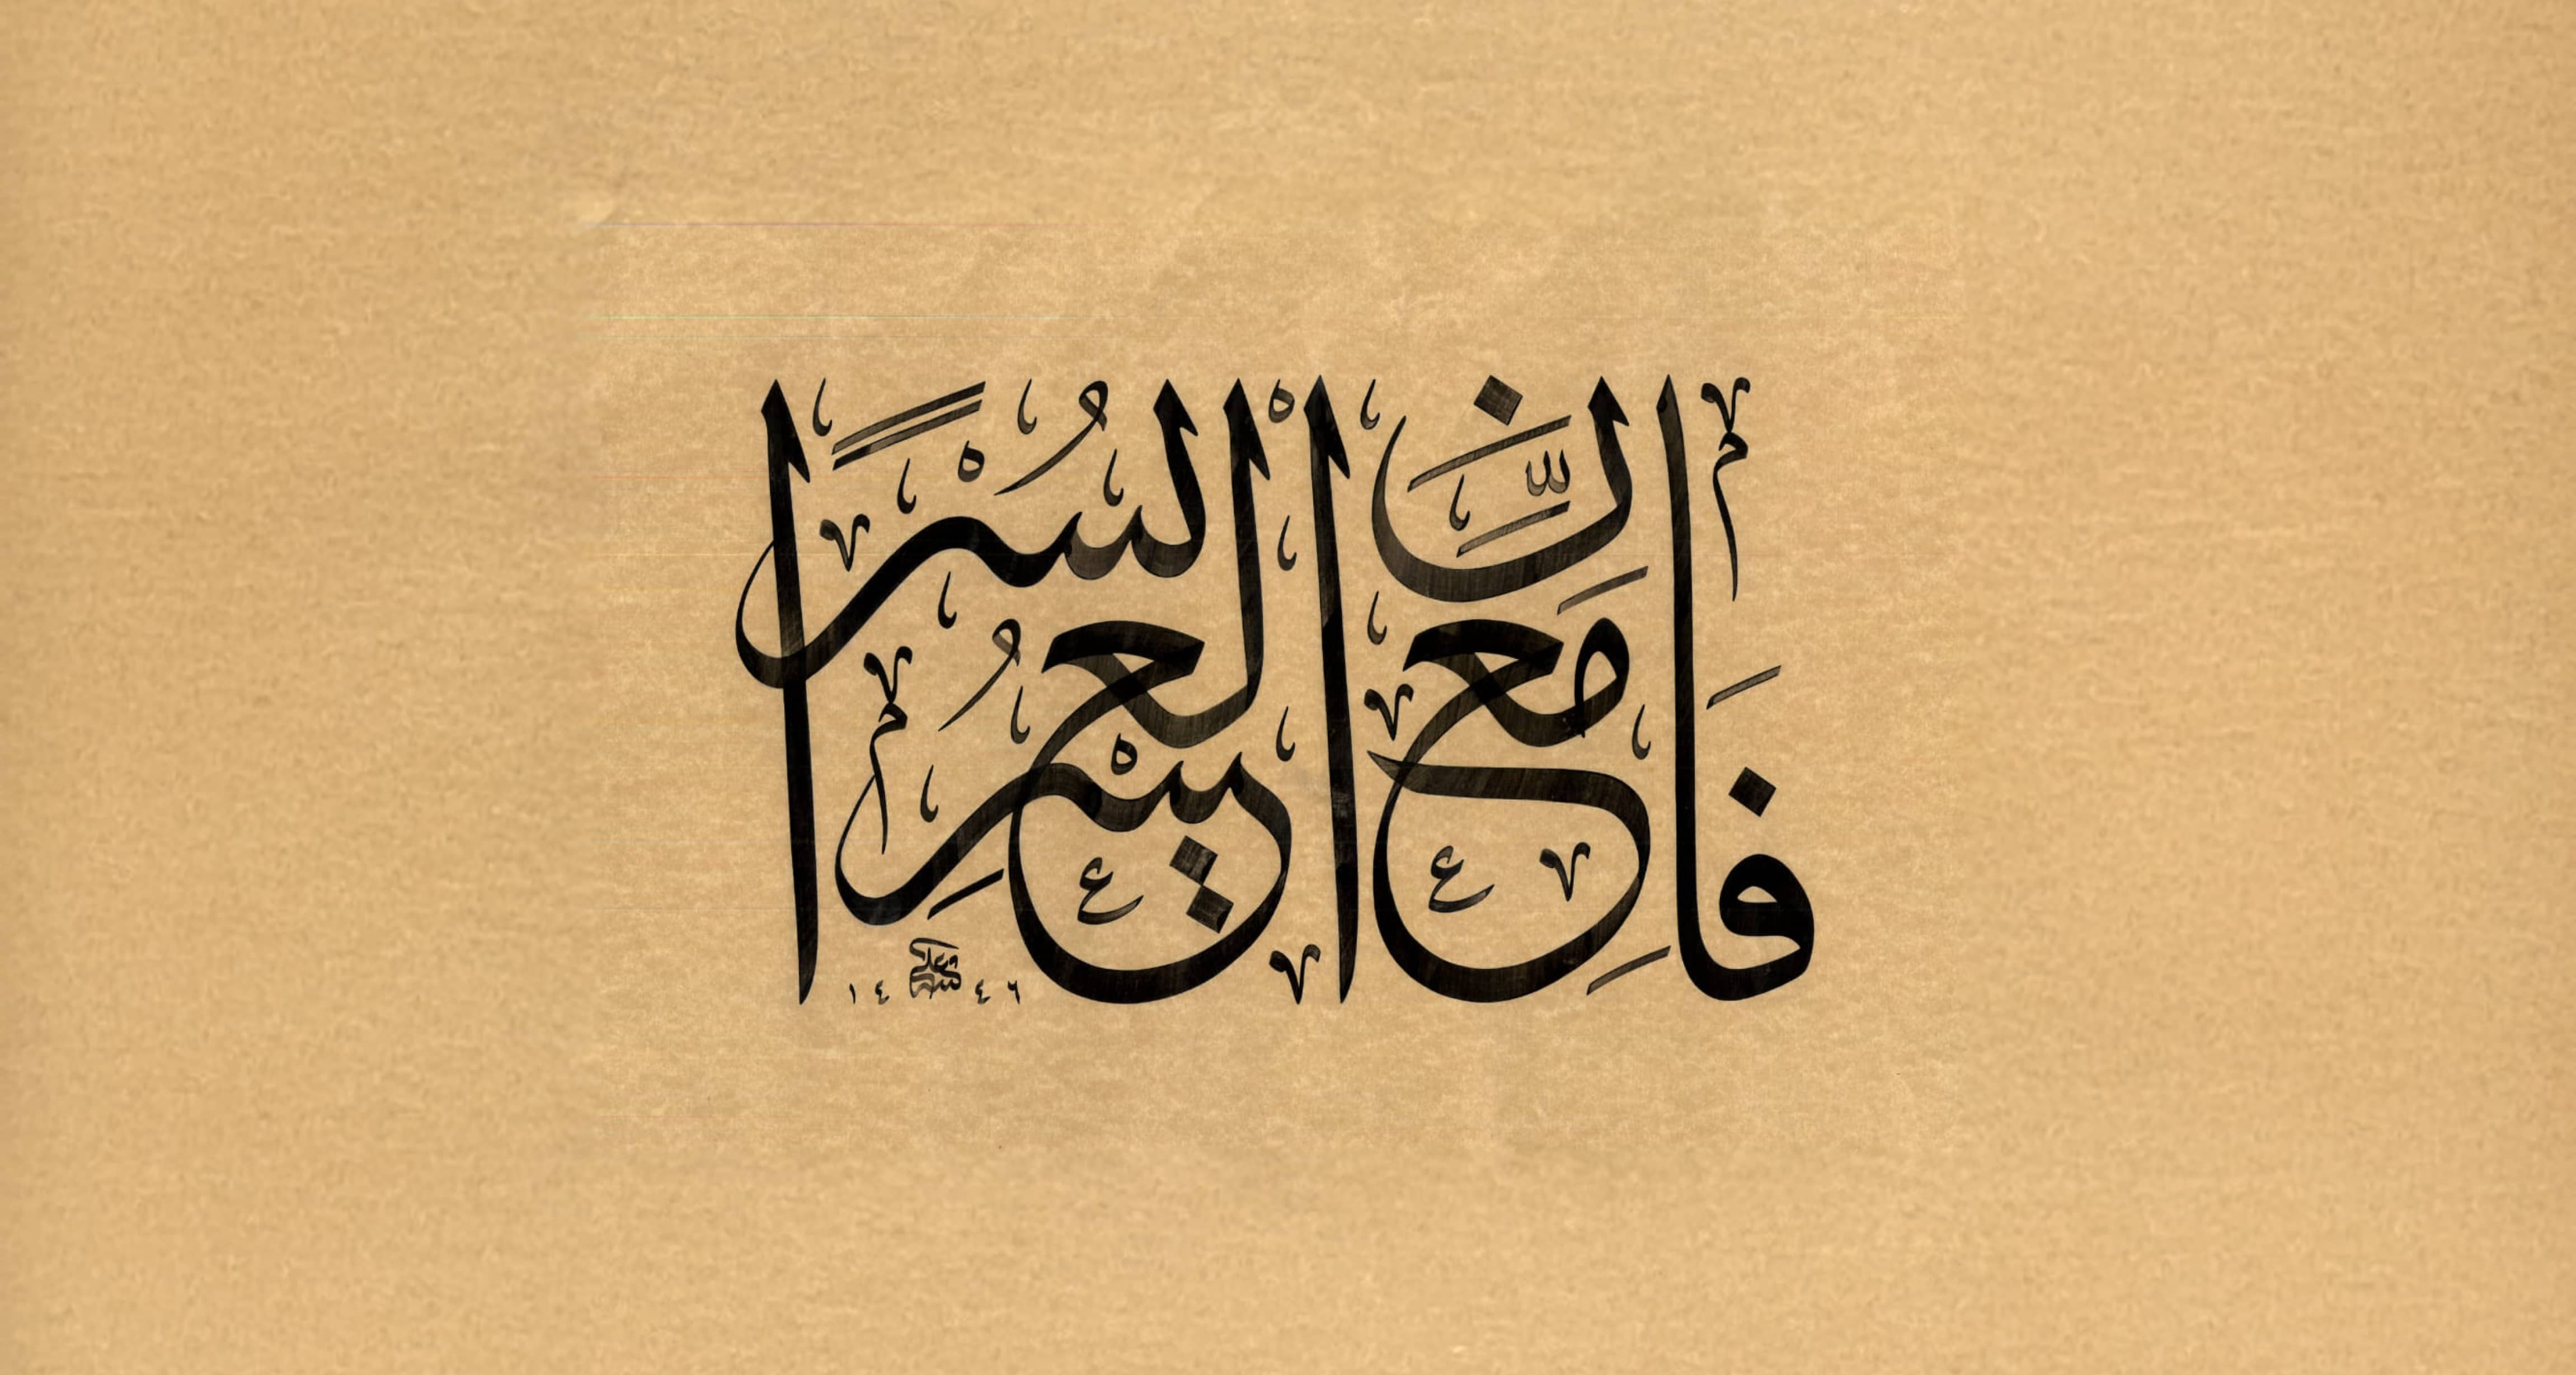 فَإِنَّ مَعَ الْعُسْرِ يُسْرًا
١٤٤٦